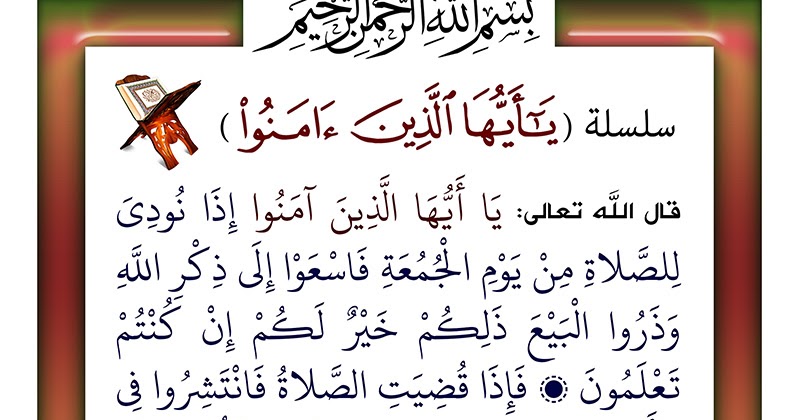 بِسْمِ اللَّهِ الرَّحْمَنِ الرَّحِيمِ
سلسلة (يَـٰٓأَيُّهَا ٱلَّذِينَ ءَامَنُوا۟)
قال الله تعالى: يَا أَيُّهَا الَّذِينَ آمَنُوا إِذَا نُودِىَ
لِلصَّلاةِ مِنْ يَوْمِ الْجُمُعَةِ فَاسْعَوْا إِلَى ذِكْرِ اللَّهِ
وَذَرُوا الْبَيْعَ ذَلِكُمْ خَيْرٌ لَكُمْ إِنْ كُنْتُمْ
تَعْلَمُونَ ۞ فَإِذَا قُضِيَتِ الصَّلاةُ فَانْتَشِرُوا فِى